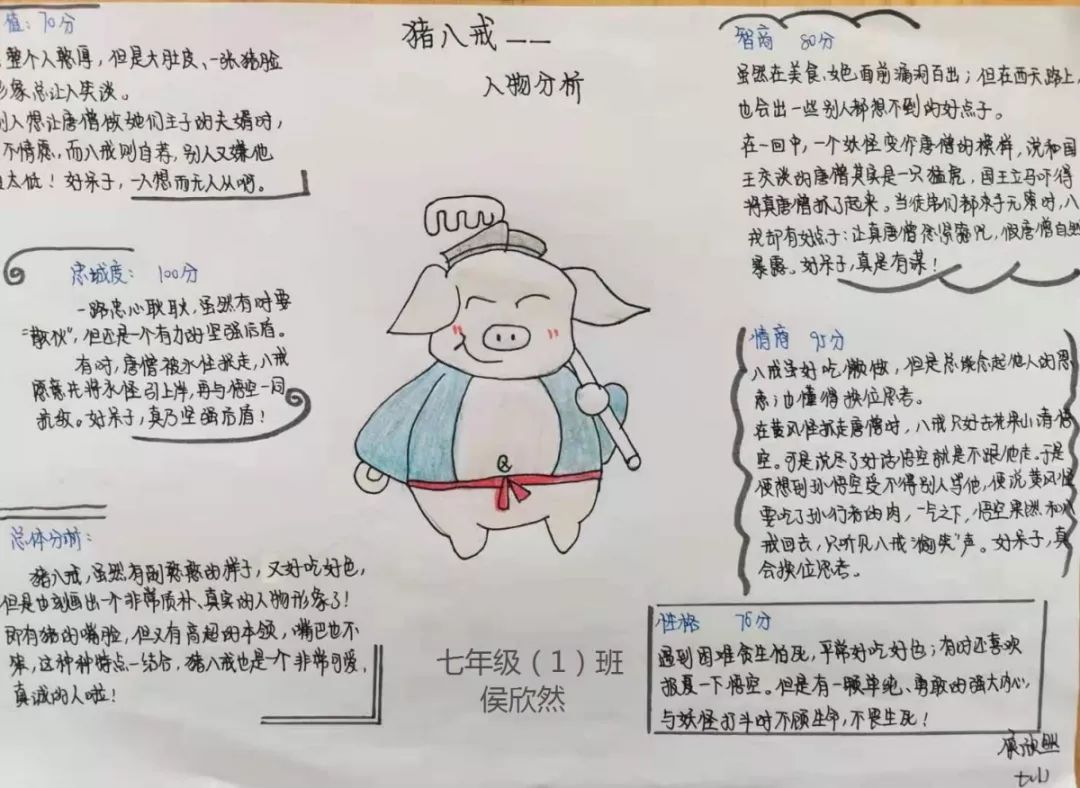 猪八戒——
人物分析
值：70分
整个人憨厚，但是大肚皮、一张猪脸
形象总让人笑谈。
别人想让唐僧做她们主子的夫婿时，
不情愿，而八戒则自荐，别人又嫌他
太低！好呆子，一人想而无人从啊。
忠诚度： 100分
一路忠心耿耿，虽然有时要
“散伙”，但还是一个有力的坚强后盾。
有时，唐僧被水怪捉走，八戒
愿意先将水怪引上岸，再与悟空一同
抗敌。好呆子，真乃坚强后盾！
总体分析：
猪八戒，虽然有副憨憨的样子，又好吃好色，
但是也刻画出一个非常质朴、真实的人物形象了！
即有猪的嘴脸，但又有高超的本领，嘴巴也不
笨，这种种特点一结合，猪八戒也是一个非常可爱，
真诚的人啦！
智商 80分
虽然在美食、女色面前漏洞百出；但在西天路上，
也会出一些别人都想不到的好点子。
在一回中，一个妖怪变作唐僧的模样，说和国
王交谈的唐僧其实是一只猛虎，国王立马吓得
将真唐僧抓了起来。当徒弟们都束手无策时，八
戒却有好点子：让真唐僧念紧箍咒，假唐僧自然
暴露。好呆子，真是有谋！
情商 95分
八戒虽好吃懒做，但是总续念起他人的恩
惠；也懂得换位思考。
在黄风怪抓走唐僧时，八戒只好去花果山请悟
空。可是说尽了好话悟空就是不跟他走。于是
便想到孙悟空受不得别人骂他，便说黄风怪
要吃了孙行者的肉，一气之下，悟空果然和八
戒回去，只听见八戒“嗍笑”声。好呆子，真
会换位思考。
性格 75分
遇到困难贪生怕死，平常好吃好色；有时还喜欢
报复一下悟空。但是有一颗单纯、勇敢的强大内心，
与妖怪打斗时不顾生命，不畏生死！
七年级（1）班
侯欣然
侯欣然
七(1)